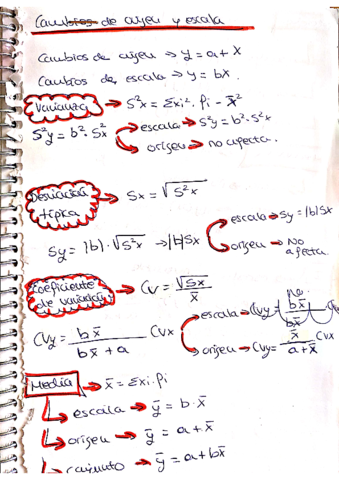 Cambios de origen y escala
Cambios de origen → y = a + x
Cambios de escala → y = bx.
Varianza → S²x = Σxi² · fi - x̄²
S²y = b² · S²x
escala → S²y = b² · S²x
origen → no afecta.
Desviación típica → Sx = √S²x
Sy = |b| · √S²x → |b|Sx
escala → Sy = |b|Sx
origen → No afecta.
Coeficiente de variación → CV = √Sx / x̄
CVy = b x̄ / b x̄ + a CVx
escala → CVy = b x̄ / b x̄
origen → CVy = x̄ / a + x̄ CVx
Media → x̄ = Σxi · fi
escala → ȳ = b · x̄
origen → ȳ = a + x̄
conjunto → ȳ = a + b x̄